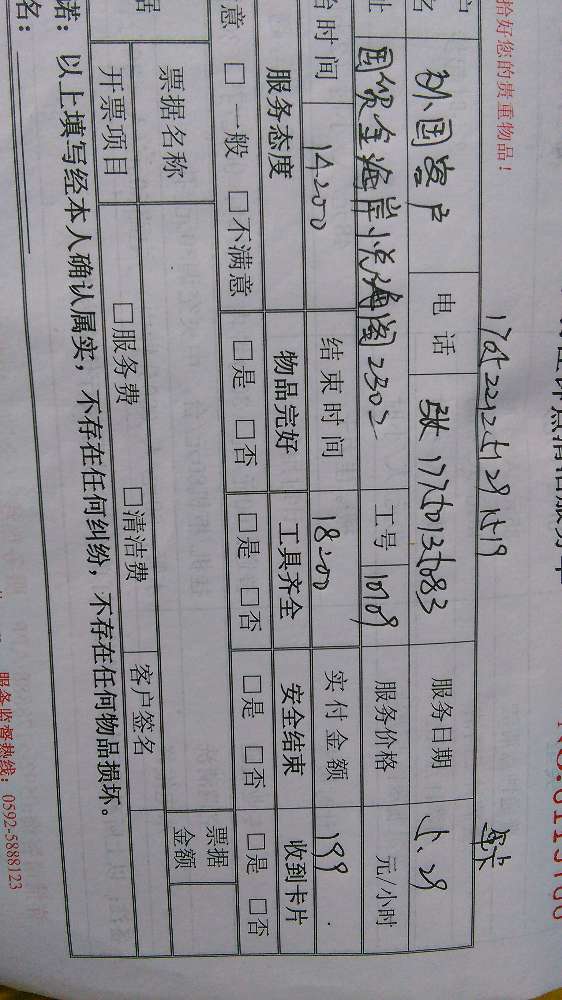 拾好您的贵重物品！
户 外国客户 电话 17750135083 服务日期 5.29
址 国贸金海岸悦海阁2302 工号 10109 服务价格 元/小时
始时间 14:00 结束时间 18:00 实付金额 199
服务态度 物品完好 工具齐全 安全结束 收到卡片
意 □一般 □不满意 □是 □否 □是 □否 □是 □否 □是 □否
据 票据名称 票据金额
开票项目 □服务费 □清洁费 客户签名
诺：以上填写经本人确认属实，不存在任何纠纷，不存在任何物品损坏。
名：
服务监督热线：0592-5888123